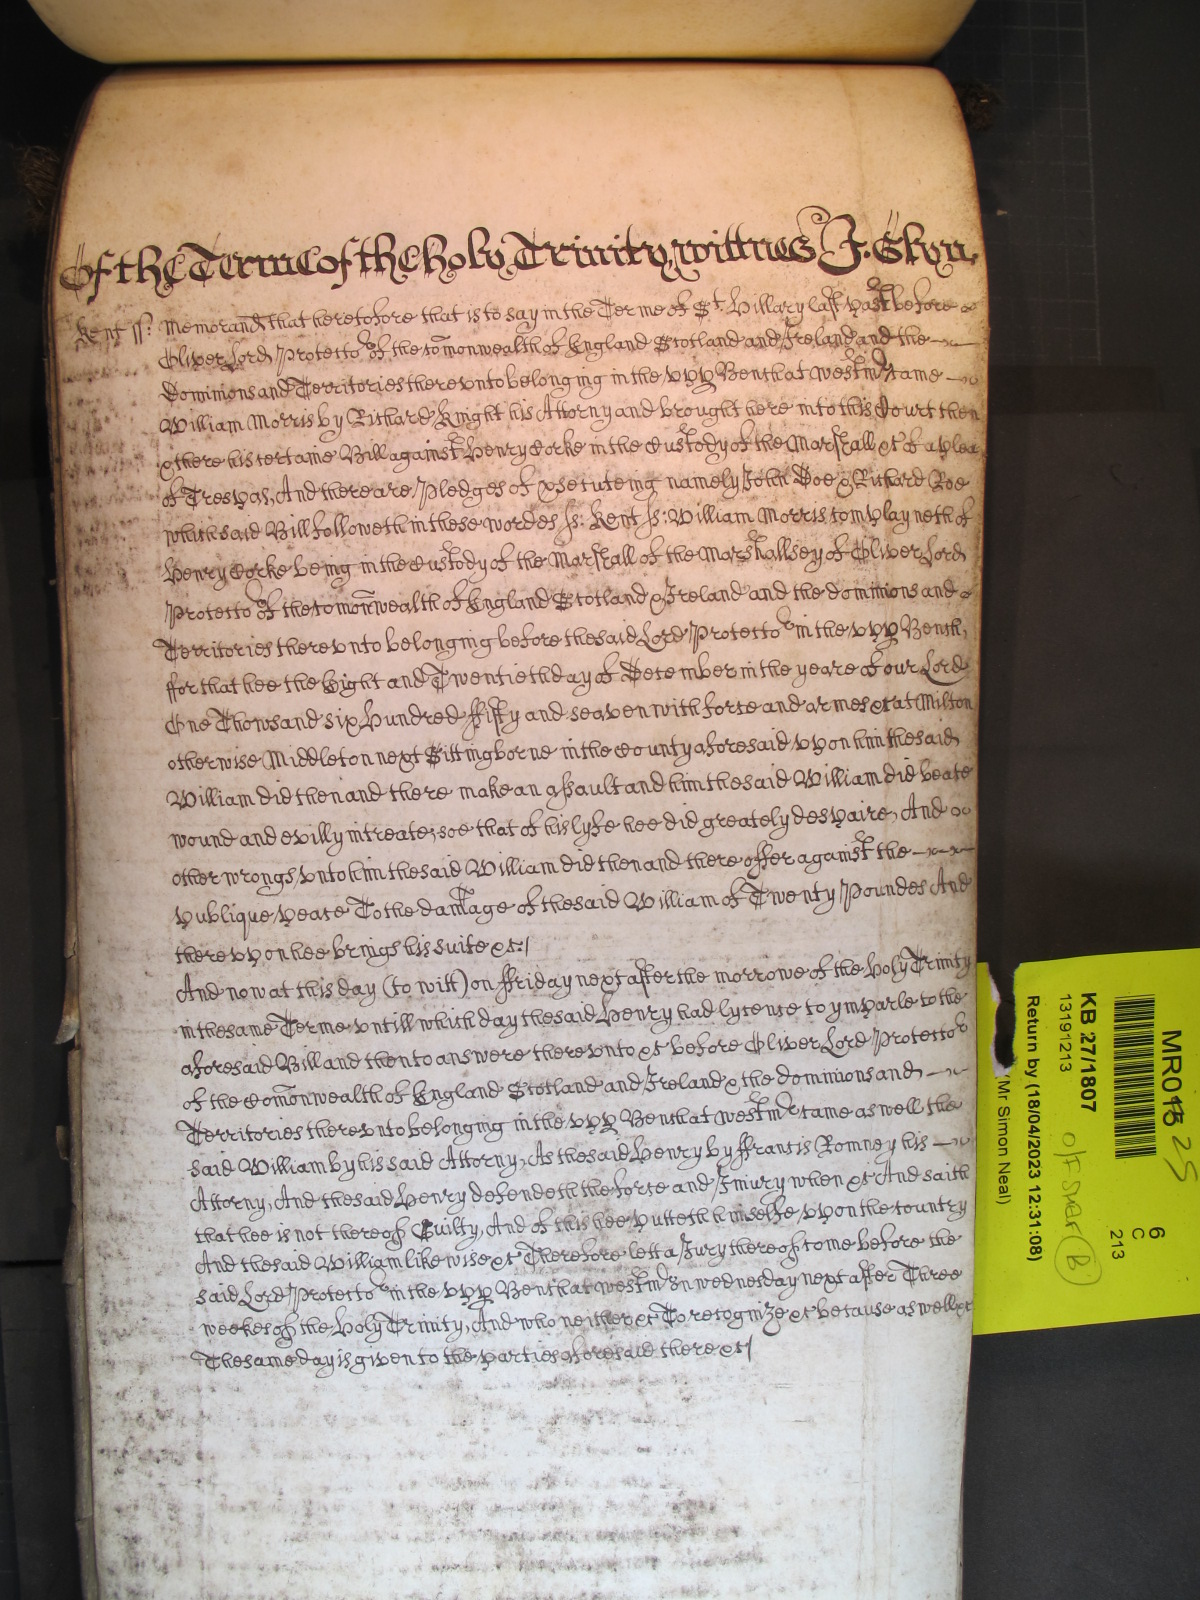 Of the Terme of the holy Trinity wittnes J. Glyn.
Kent ss: Memorand that heretofore that is to say in the Terme of St. Hillary last past before
Oliver Lord Protector of the Comonwealth of England Scotland and Ireland and the
Dominions and Territories therevnto belonging in the vpp Bench at Westmr came
William Morris by Richard Knight his Attorny and brought here into this Court then
& there his certaine Bill against Henry Corke in the Custody of the Marshall &c of a plea
of Trespas, And there are Pledges of p'secuteing namely John Doe & Richard Roe
which said Bill followeth in these wordes ss: Kent ss: William Morris complayneth of
Henry Corke being in the Custody of the Marshall of the Marshallsey of Oliver Lord
Protector of the Comonwealth of England Scotland & Ireland and the dominions and
Territories therevnto belonging before the said Lord Protector in the vpp Bench,
ffor that hee the Eight and Twentieth day of December in the yeare of our Lord
One Thowsand six Hundred ffifty and seaven with force and armes &c at Milton
otherwise Middleton next Sittingborne in the County aforesaid vpon him the said
William did then and there make an assault and him the said William did beate
wound and evilly intreate, soe that of his lyfe hee did greately despaire, And
other wrongs vnto him the said William did then and there offer against the
publique peace To the damage of the said William of Twenty Poundes And
there vpon hee brings his suite &c.
And now at this day (to witt) on ffriday next after the morrowe of the Holy Trinity
in the same Terme vntill which day the said Henry had lycense to ymparle to the
aforesaid Bill and then to answere therevnto &c before Oliver Lord Protector
of the Comonwealth of England Scotland and Ireland & the dominions and
Territories therevnto belonging in the vpp Bench at Westmr came as well the
said William by his said Attorny, As the said Henry by ffrancis Romney his
Attorny, And the said Henry defendeth the force and Iniury when &c And saith
that hee is not thereof Guilty, And of this hee putteth himselfe vpon the country
And the said William likewise &c Therefore lett a Jury thereof come before the
said Lord Protector in the vpp Bench at Westmr on wednesday next after Three
weekes of the Holy Trinity, And who neither &c To recognize &c because as well &c
The same day is given to the parties aforesaid there &c
MR013
25
6
C
213
KB 27/1807
13191213
O/F SHARE (B)
Return by (18/04/2023 12:31:08)
(Mr Simon Neal)